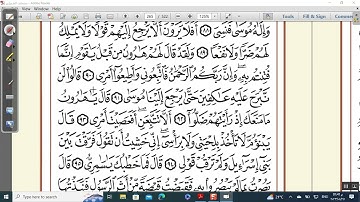 Tools Fill & Sign Comment
120%
وَإِلَٰهُ مُوسَىٰ فَنَسِيَ ٨٨ أَفَلَا يَرَوْنَ أَلَّا يَرْجِعُ إِلَيْهِمْ قَوْلًا وَلَا يَمْلِكُ
لَهُمْ ضَرًّا وَلَا نَفْعًا ٨٩ وَلَقَدْ قَالَ لَهُمْ هَٰرُونُ مِن قَبْلُ يَٰقَوْمِ إِنَّمَا
فُتِنتُم بِهِۦ وَإِنَّ رَبَّكُمُ ٱلرَّحْمَٰنُ فَٱتَّبِعُونِى وَأَطِيعُوٓا۟ أَمْرِى ٩٠ قَالُوا۟ لَن
نَّبْرَحَ عَلَيْهِ عَٰكِفِينَ حَتَّىٰ يَرْجِعَ إِلَيْنَا مُوسَىٰ ٩١ قَالَ يَٰهَٰرُونُ
مَا مَنَعَكَ إِذْ رَأَيْتَهُمْ ضَلُّوٓا۟ ٩٢ أَلَّا تَتَّبِعَنِ أَفَعَصَيْتَ أَمْرِى ٩٣ قَالَ
يَبْنَؤُمَّ لَا تَأْخُذْ بِلِحْيَتِى وَلَا بِرَأْسِىٓ إِنِّى خَشِيتُ أَن تَقُولَ فَرَّقْتَ بَيْنَ
بَنِىٓ إِسْرَٰٓءِيلَ وَلَمْ تَرْقُبْ قَوْلِى ٩٤ قَالَ فَمَا خَطْبُكَ يَٰسَٰمِرِىُّ ٩٥ قَالَ
بَصُرْتُ بِمَا لَمْ يَبْصُرُوا۟ بِهِۦ فَقَبَضْتُ قَبْضَةً مِّنْ أَثَرِ ٱلرَّسُولِ فَنَبَذْتُهَا